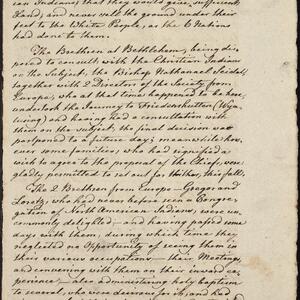 ian Indians that they would give sufficient
Land; and never sell the ground under their
feet to the White People, as the 6 Nations
had done to them.
The Brethren at Bethlehem, being de-
sired to consult with the Christian Indians
on the Subject, the Bishop Nathanael Seidel,
together with 2 Directors of the Society from
Europe, who at that time happened to be here,
undertook the Journey to Friedenshutten (Wya-
lusing) and having had a consultation with
them on the subject, the final decision was
postponed to a future day; meanwhile how-
ever some families, who had signified a
wish to agree to the proposal of the Chiefs, were
gladly permitted to set out for thither, this fall.
The 2 Brethren from Europe – Gregor and
Loretz, who had never before seen a Congre-
gation of North American Indians, were un-
commonly delighted – and having passed some
days with them, during which time they
neglected no Opportunity of seeing them in
their various occupations – their Meetings,
and conversing with them on their inward ex-
perience – also administering holy baptism
to several, who were desirous for it, and had